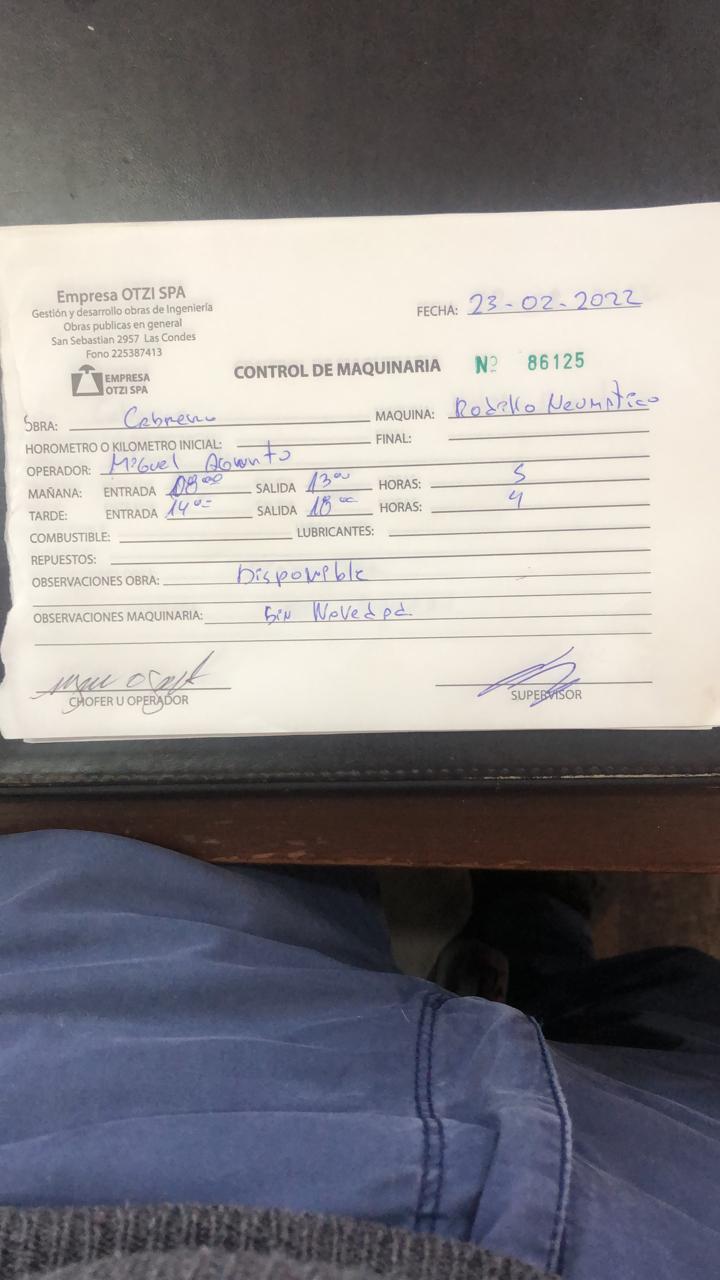 Empresa OTZI SPA
Gestión y desarrollo obras de Ingeniería
Obras publicas en general
San Sebastian 2957 Las Condes
Fono 225387413
EMPRESA
OTZI SPA
FECHA: 23-02-2022
CONTROL DE MAQUINARIA Nº 86125
OBRA: Cabrero MAQUINA: Rodillo Neumatico
HOROMETRO O KILOMETRO INICIAL: FINAL:
OPERADOR: Miguel
MAÑANA: ENTRADA 08 00 SALIDA 13 00 HORAS: 5
TARDE: ENTRADA 14 00 SALIDA 18 00 HORAS: 4
COMBUSTIBLE: LUBRICANTES:
REPUESTOS:
OBSERVACIONES OBRA: Disponible
OBSERVACIONES MAQUINARIA: Sin Novedad
CHOFER U OPERADOR SUPERVISOR